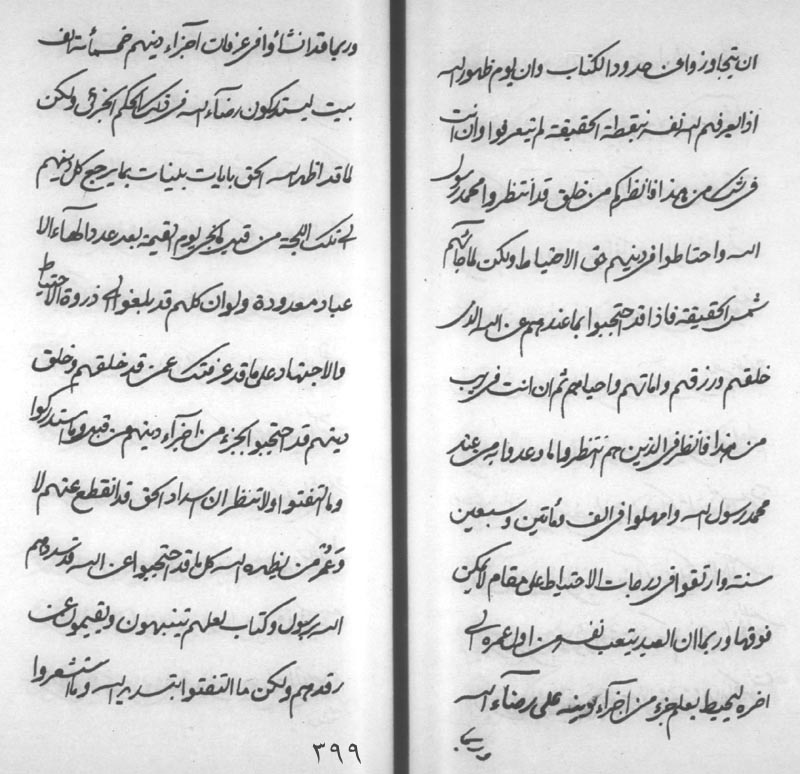 ان يتجاوزوا عن حدود الكتاب وان يوم ظهور الله
اذا يعرفهم الله نفسه بنقطة الحقيقة لم يتعرفوا وان انت
فی شك من هذا فانظر كم من خلق قد انتظروا محمد رسول
الله واحتاطوا فی دينهم حق الاحتياط ولكن لما جائهم
شمس الحقيقة فاذا قد احتجبوا بما عندهم عن الله الذی
خلقهم ورزقهم واماتهم واحياهم ثم ان انت فی ريب
من هذا فانظر فی الذين هم انتظروا ما وعدوا به من عند
محمد رسول الله وامهلوا فی الف ومأتين وسبعين
سنة وارتقوا فی درجات الاحتياط علی مقام لا يمكن
فوقها وربما ان العبد يتعب نفسه من اول عمره الی
اخره ليحيط بعلم جزء من اجزاء دينه علی رضاء الله
وربما
وربما قد انشأوا فی عرفات اجزاء دينهم خمسمأئة الف
بيت ليستدركون رضاء الله فی تلك الحكم الجزئی ولكن
لما قد اظهر الله الحق بايات بينات بما يرجع كل دينهم
الی تلك اللجة من قبل ما نجی يوم القيمة بعدد الهاء الا
عباد معدودة ولو ان كلهم قد بلغوا الی ذروة الاحتياط
والاجتهاد علی ما قد عرفتك عمن قد خلقهم وخلق
دينهم قد احتجبوا لجزء من اجزاء دينهم من قبل وما استدركوا
وما التفتوا ولا تنظر ان امداد الحق قد انقطع عنهم لا
وعمر من يظهره الله كل ما قد احتجبوا عن الله قد امدهم
الله برسول وكتاب لعلهم يتنبهون ويقيمون عن
رقدهم ولكن ما التفتوا بتدبير الله وما استشعروا
٣٩٩